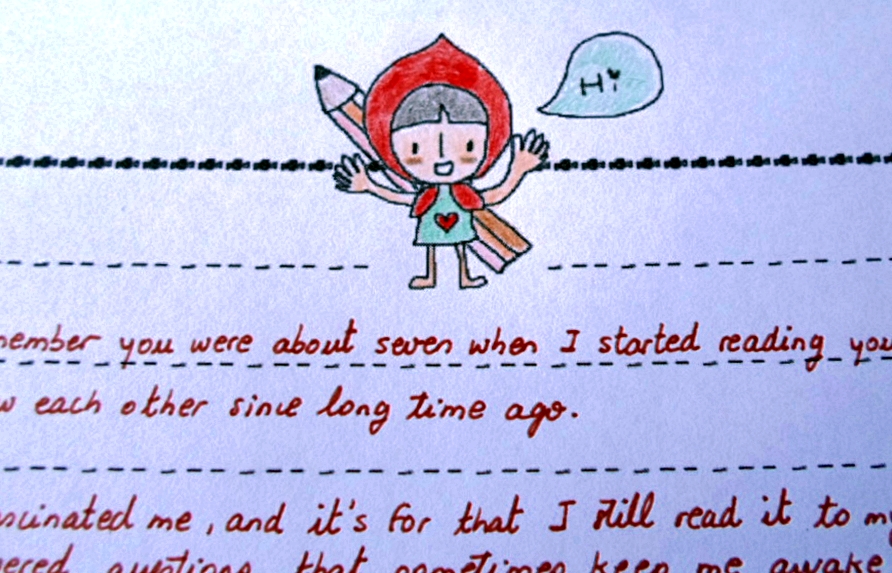 Hi
member you were about seven when I started reading you
w each other since long time ago.
scinated me, and it's for that I still read it to my
ered questions that sometimes keep me awake